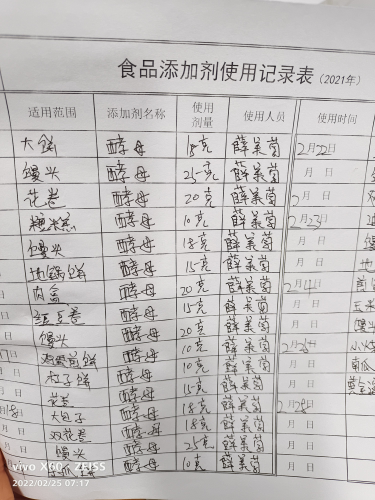 食品添加剂使用记录表(2021年)
适用范围 添加剂名称 使用剂量 使用人员 使用时间
大饼 酵母 15克 薛美菊 2月22日
馒头 酵母 25克 薛美菊 月 日
花卷 酵母 20克 薛美菊 月 日
酵母 10克 薛美菊 2月23日
馒头 酵母 18克 薛美菊 月 日
地锅饼 酵母 15克 薛美菊 月 日
肉盒 酵母 20克 薛美菊 2月24日
红豆卷 酵母 15克 薛美菊 月 日
馒头 酵母 20克 薛美菊 月 日
鸡蛋煎饼 酵母 10克 薛美菊 2月26日
酵母 10克 薛美菊 月 日
花卷 酵母 15克 薛美菊 月 日
大包子 酵母 18克 薛美菊 2月28日
双花卷 酵母 18克 薛美菊 月 日
馒头 酵母 25克 薛美菊 月 日
南瓜饼 酵母 10克 薛美菊 月 日
vivo X60 | ZEISS
2022/02/25 07:17